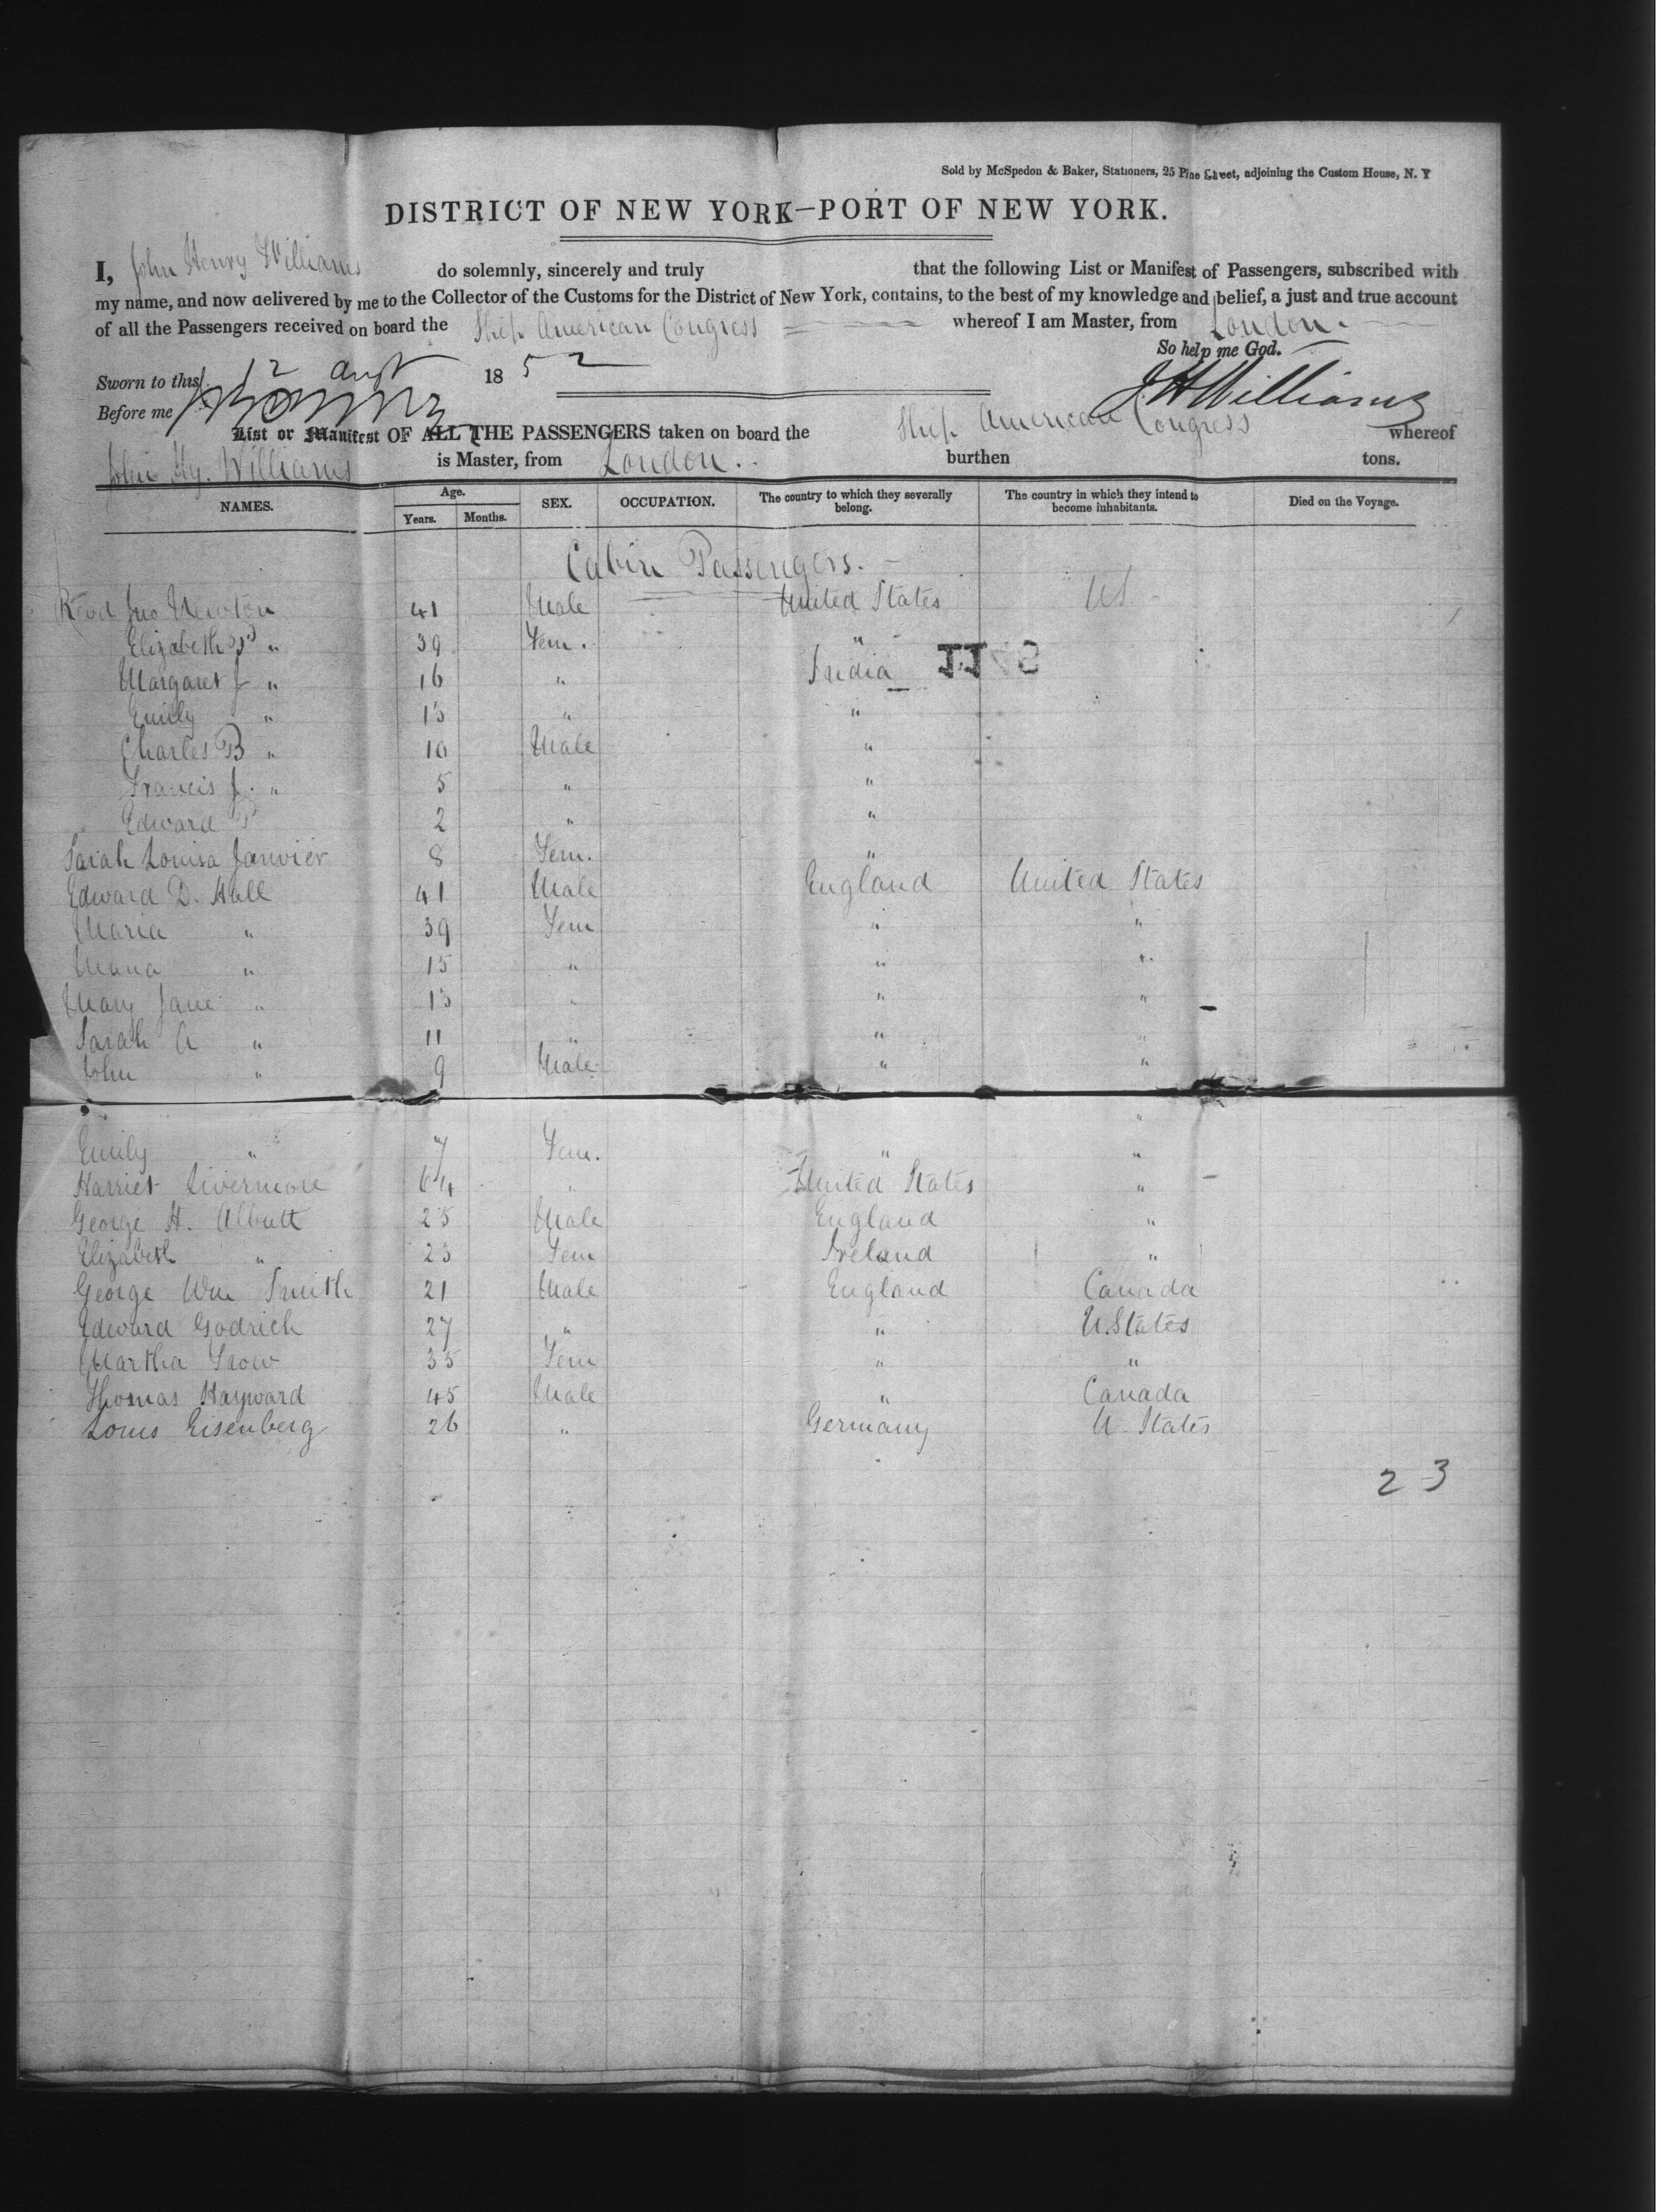 Sold by McSpedon & Baker, Stationers, 25 Pine Street, adjoining the Custom House, N. Y
DISTRICT OF NEW YORK—PORT OF NEW YORK.
I, John Henry Williams do solemnly, sincerely and truly that the following List or Manifest of Passengers, subscribed with
my name, and now delivered by me to the Collector of the Customs for the District of New York, contains, to the best of my knowledge and belief, a just and true account
of all the Passengers received on board the Ship American Congress whereof I am Master, from London.
So help me God.
Sworn to this 12 Augt 1852
J H Williams
Before me
List or Manifest OF ALL THE PASSENGERS taken on board the Ship American Congress whereof
John Hy. Williams is Master, from London. burthen tons.
NAMES. Age. Years. Months. SEX. OCCUPATION. The country to which they severally belong. The country in which they intend to become inhabitants. Died on the Voyage.
Cabin Passengers.
Revd Jno Newton 41 Male United States US
Elizabeth " 39 Fem. "
Margaret J " 16 " India
Emily " 13 " "
Charles B " 10 Male "
Francis J. " 5 " "
Edward 2 " "
Sarah Louisa Janvier 8 Fem. "
Edward D. Hall 41 Male England United States
Maria " 39 Fem " "
Maria " 15 " " "
Mary Jane " 13 " " "
Sarah A " 11 " " "
John " 9 Male " "
"
Emily " 7 Fem. " "
Harriet Livermore 64 " United States "
George H. Albutt 25 Male England "
Elizabeth " 23 Fem Ireland "
George Wm Smith 21 Male England Canada
Edward Godrich 27 " " U. States
Martha 35 Fem " "
Thomas Hayward 45 Male " Canada
Louis Eisenberg 26 " Germany U. States
23